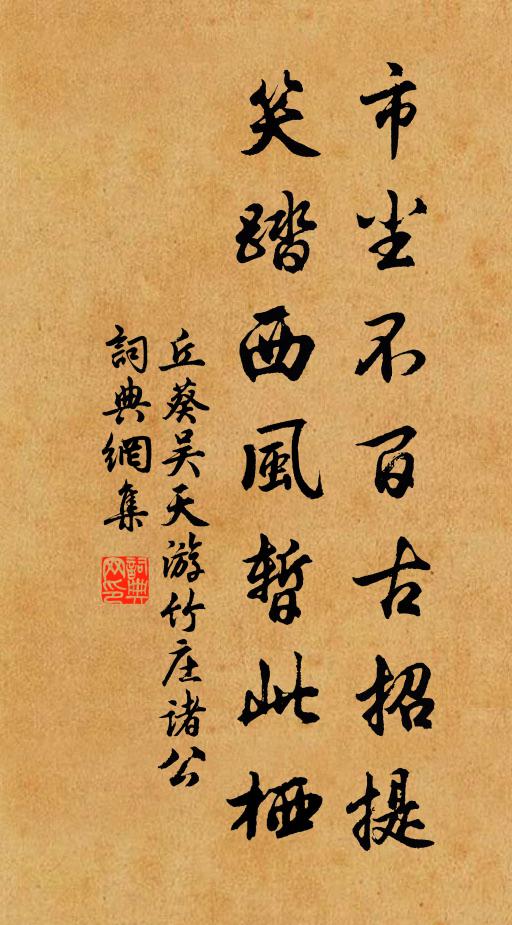 市尘不百古招提
笑踏西風暫此栖
丘葵吴天游竹庄诸公
詞典網集
詞典網印